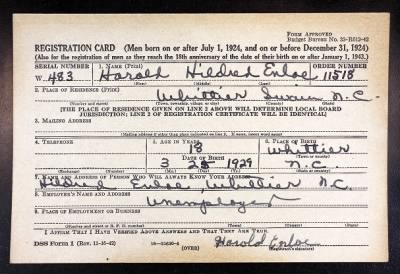 FORM APPROVED
Budget Bureau No. 33-R012-42
REGISTRATION CARD (Men born on or after July 1, 1924, and on or before December 31, 1924)
(Also for the registration of men as they reach the 18th anniversary of the date of their birth on or after January 1, 1943.)
SERIAL NUMBER 1. NAME (Print) ORDER NUMBER
W. 483 Harold Hildred Enloe 11518
(First) (Middle) (Last)
2. PLACE OF RESIDENCE (Print)
Whittier Swain N.C.
(Number and street) (Town, township, village, or city) (County) (State)
[THE PLACE OF RESIDENCE GIVEN ON LINE 2 ABOVE WILL DETERMINE LOCAL BOARD
JURISDICTION; LINE 2 OF REGISTRATION CERTIFICATE WILL BE IDENTICAL]
3. MAILING ADDRESS
(Mailing address if other than place indicated on line 2. If same, insert word same)
4. TELEPHONE 5. AGE IN YEARS 6. PLACE OF BIRTH
18 Whittier
DATE OF BIRTH (Town or county)
3 25 1929 N.C.
(Exchange) (Number) (Mo.) (Day) (Yr.) (State or country)
7. NAME AND ADDRESS OF PERSON WHO WILL ALWAYS KNOW YOUR ADDRESS
Hildred Enloe, Whittier N.C.
8. EMPLOYER'S NAME AND ADDRESS
Unemployed
9. PLACE OF EMPLOYMENT OR BUSINESS
(Number and street or R. F. D. number) (Town) (County) (State)
I AFFIRM THAT I HAVE VERIFIED ABOVE ANSWERS AND THAT THEY ARE TRUE.
DSS Form 1 (Rev. 11-16-42) (OVER) Harold Enloe
(Registrant's signature)